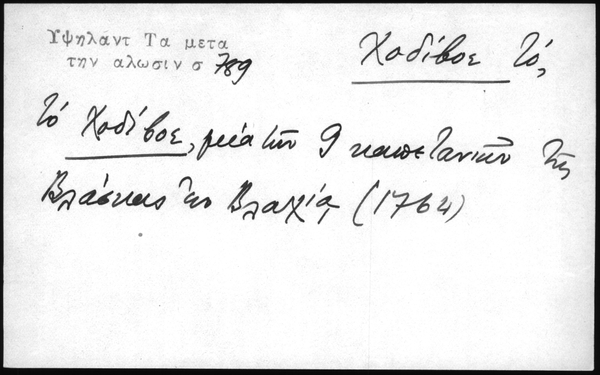 Υψηλάντ Τα μετα
την αλωσιν σ 789
Χοδίβοε τό,
τό Χοδίβοε, μία τῶν 9 καπετανιῶν τῆς
Βλάσκας ἐν Βλαχίᾳ (1764)